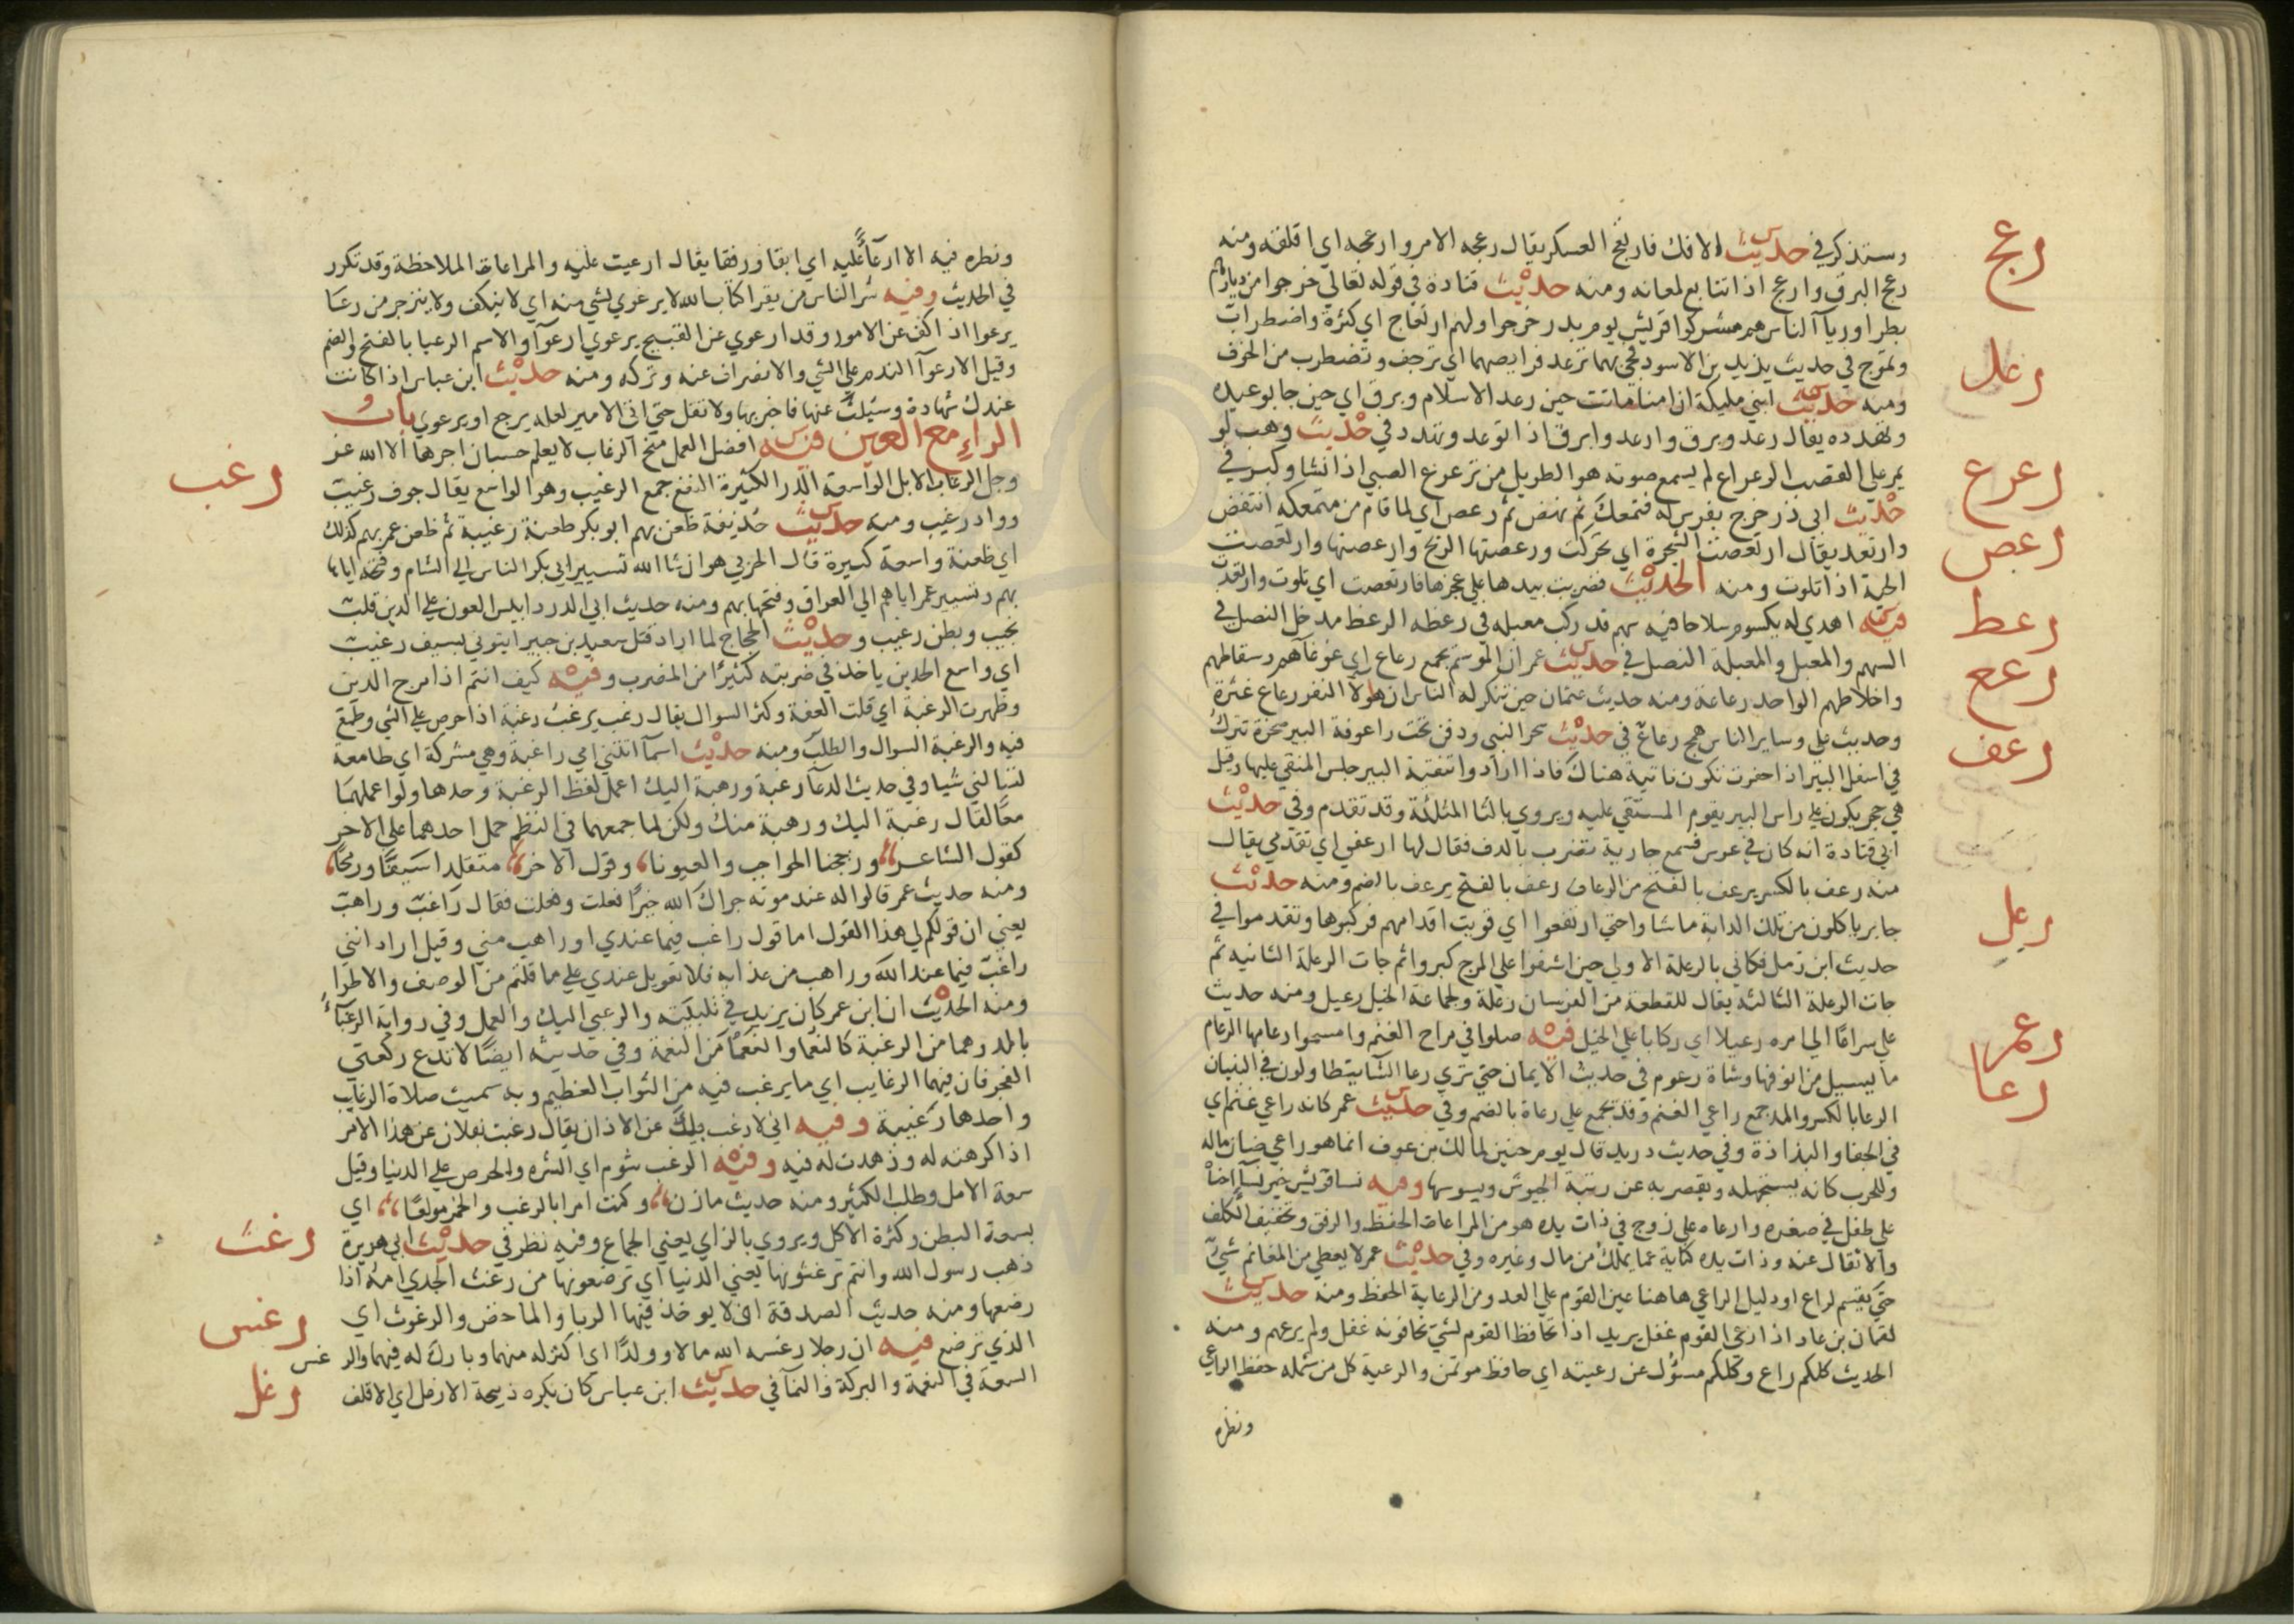 رعج
وستذكر في حديث الافك فارتعج العسكر يقال رعجه الامر وارعجه اي اقلقه ومنه
رعج البرق وارعج اذا تتابع لمعانه ومنه حديث قتادة في قوله تعالى خرجوا من ديارهم
بطرا وريآ الناس هم مشركوا قريش يوم بدر خرجوا ولهم ارتعاج اي كثرة واضطراب
رعد
وتموج في حديث يزيد بن الاسود فجي بهما ترعد فرايصهما اي ترجف وتضطرب من الخوف
ومنه حديث ابني مليكة ان امنا ماتت حين رعد الاسلام وبرق اي حين جا بوعيده
وتهدده يقال رعد وبرق وارعد وابرق اذا توعد وتهدد في حديث وهب لو
رعرع
يمر على القصب الرعراع لم يسمع صوته هو الطويل من ترعرع الصبي اذا نشا وكبر في
رعص
حديث ابي ذر خرج بفرس له فتمعك ثم نهض ثم رعص اي لما قام من متمعكه انتفض
وارتعد يقال ارتعصت الشجرة اي تحركت ورعصتها الريح وارعصتها وارتعصت
الحية اذا تلوت ومنه الحديث فضربت بيدها على عجزها فارتعصت اي تلوت وارتعدت
رعظ
فيه اهدي له يكسوم سلاحا فيه سهم قد ركب معبله في رعظه الرعظ مدخل النصل في
رعع
السهم والمعبل والمعبلة النصل في حديث عمر ان الموسم يجمع رعاع اي غوغآهم وسقاطهم
واخلاطهم الواحد رعاعة ومنه حديث عثمان حين تنكر له الناس ان هولآ النفر رعاع غثرة
رعف
وحديث علي وساير الناس همج رعاع في حديث سحر النبي ودفن تحت راعوفة البير صخرة تترك
في اسفل البير اذا حفرت تكون ناتية هناك فاذا ارادوا تنقية البير جلس المنقي عليها وقيل
هي حجر يكون على راس البير يقوم المستقي عليه ويروي بالثا المثلثة وقد تقدم وفي حديث
ابي قتادة انه كان في عرس فسمع جارية تضرب بالدف فقال لها ارعفي اي تقدمي يقال
منه رعف بالكسر يرعف بالفتح من الرعاف رعف بالفتح يرعف بالضم ومنه حديث
رعل
جابر ياكلون من تلك الدابة ما شاوا حتي ارتعفوا اي قويت اقدامهم فركبوها وتقدموا في
حديث ابن زمل فكاني بالرعلة الاولي حين اشفوا علي المرج كبروا ثم جات الرعلة الثانيه ثم
جات الرعلة الثالثة يقال للقطعة من الفرسان رعلة ولجماعة الخيل رعيل ومنه حديث
رعم
علي سراعا الي امره رعيلا اي ركابا على الخيل فيه صلوا في مراح الغنم وامسحوا رعامها الرعام
رعا
ما يسيل من انوفها وشاة رعوم في حديث الايمان حتي تري رعا الشا يتطاولون في البنيان
الرعا بالكسر والمد جمع راعي الغنم وقد يجمع علي رعاة بالضم وفي حديث عمر كانه راعي غنم اي
في الجفا والبذاذة وفي حديث دريد قال يوم حنين لمالك بن عوف انما هو راعي ضان ماله
وللحرب كانه يستجهله ويقصر به عن رتبة الجيوش ويسوسها وفيه نسا قريش خير نسآ احناه
علي طفل في صغره وارعاه علي زوج في ذات يده هو من المراعاة الحفظ والرفق وتخفيف الكلف
والاثقال عنه وذات يده كناية عما يملك من مال وغيره وفي حديث عمر لا يعطي من المغانم شيء
حتي تقسم لراع او دليل الراعي هاهنا عين القوم علي العدو من الرعاية الحفظ ومنه حديث
لقمان بن عاد اذا رعي القوم غفل يريد اذا تحافظ القوم لشي يخافونه غفل ولم يرعهم ومنه
الحديث كلكم راع وكلكم مسؤل عن رعيته اي حافظ موتمن والرعية كل من شمله حفظ الراعي
ونظره
ونظره فيه الا ارعآء عليه اي ابقا ورفقا يقال ارعيت عليه والمراعاة الملاحظة وقد تكرر
في الحديث وفيه شر الناس من يقرا كتاب الله لا يرعوي لشي منه اي لا ينكف ولا ينزجر من رعا
يرعوا اذا كف عن الامور وقد ارعوي عن القبيح يرعوي ارعوآ والاسم الرعيا بالفتح والضم
وقيل الارعوآ الندم علي الشي والانصراف عنه وتركه ومنه حديث ابن عباس اذا كانت
عندك شهادة وسئلت عنها فاخبر بها ولا تقل حتي اتي الامير لعله يرجع او يرعوي باب
الراء مع الغين فيه افضل العمل منح الرغاب لا يعلم حسبان اجرها الا الله عز
رغب
وجل الرغاب الابل الواسعة الدر الكثيرة النفع جمع الرغيب وهو الواسع يقال جوف رغيب
وواد رغيب ومنه حديث حذيفة ظعن بهم ابو بكر ظعنة رغيبة ثم ظعن عمر بهم كذلك
اي ظعنة واسعة كبيرة قال الحربي هو ان شا الله تسيير ابي بكر الناس الي الشام وفتحه اياها
بهم وتسيير عمر اياهم الي العراق وفتحها بهم ومنه حديث ابي الدردا بيس العون علي الدين قلب
نجيب وبطن رغيب وحديث الحجاج لما اراد قتل سعيد بن جبير ايتوني بسيف رغيب
اي واسع الحدين ياخذ في ضربته كثيرا من المضرب وفيه كيف انتم اذا مرج الدين
وظهرت الرغبة اي قلت العفة وكثر السوال يقال رغب يرغب رغبة اذا حرص علي الشي وطمع
فيه والرغبة السوال والطلب ومنه حديث اسمآ اتتني امي راغبة وهي مشركة اي طامعة
لتسالني شيا وفي حديث الدعآ رغبة ورهبة اليك اعمل لفظ الرغبة وحدها ولو اعملهما
معا لقال رغبة اليك ورهبة منك ولكن لما جمعهما في النظم حمل احدهما علي الاخر
كقول الشاعر وزججنا الحواجب والعيونا وقول الاخر متقلدا سيفا ورمحا
ومنه حديث عمر قالوا له عند موته جزاك الله خيرا فعلت وفعلت فقال راغب وراهب
يعني ان قولكم لي هذا القول اما قول راغب فيما عندي او راهب مني وقيل اراد انني
راغب فيما عند الله وراهب من عذابه فلا تعويل عندي علي ما قلتم من الوصف والاطرا
ومنه الحديث ان ابن عمر كان يزيد في تلبيته والرغبي اليك والعمل وفي رواية الرغبآء
بالمد وهما من الرغبة كالنعما والنعمى من النعمة وفي حديثه ايضا لا تدع ركعتي
الفجر فان فيهما الرغايب اي ما يرغب فيه من الثواب العظيم وبه سميت صلاة الرغايب
واحدها رغيبة وفيه اني لارغب بك عن الاذان يقال رغبت بفلان عن هذا الامر
اذا كرهته له وزهدت له فيه وفيه الرغب شوم اي الشره والحرص علي الدنيا وقيل
سعة الامل وطلب الكثير ومنه حديث مازن وكنت امرا بالرغب والخمر مولعا اي
رغث
بسعة البطن وكثرة الاكل ويروي بالزاي يعني الجماع وفيه نظر في حديث ابي هريرة
ذهب رسول الله وانتم ترغثونها يعني الدنيا اي ترضعونها من رغث الجدي امه اذا
رضعها ومنه حديث الصدقة ان لا يوخذ فيها الربا والماخض والرغوث اي
رغس
الذي ترضع فيه ان رجلا رغسه الله مالا وولدا اي اكثر له منهما وبارك له فيهما والرغس
رغل
السعة في النعمة والبركة والنمآ في حديث ابن عباس كان يكره ذبيحة الارغل اي الاقلف